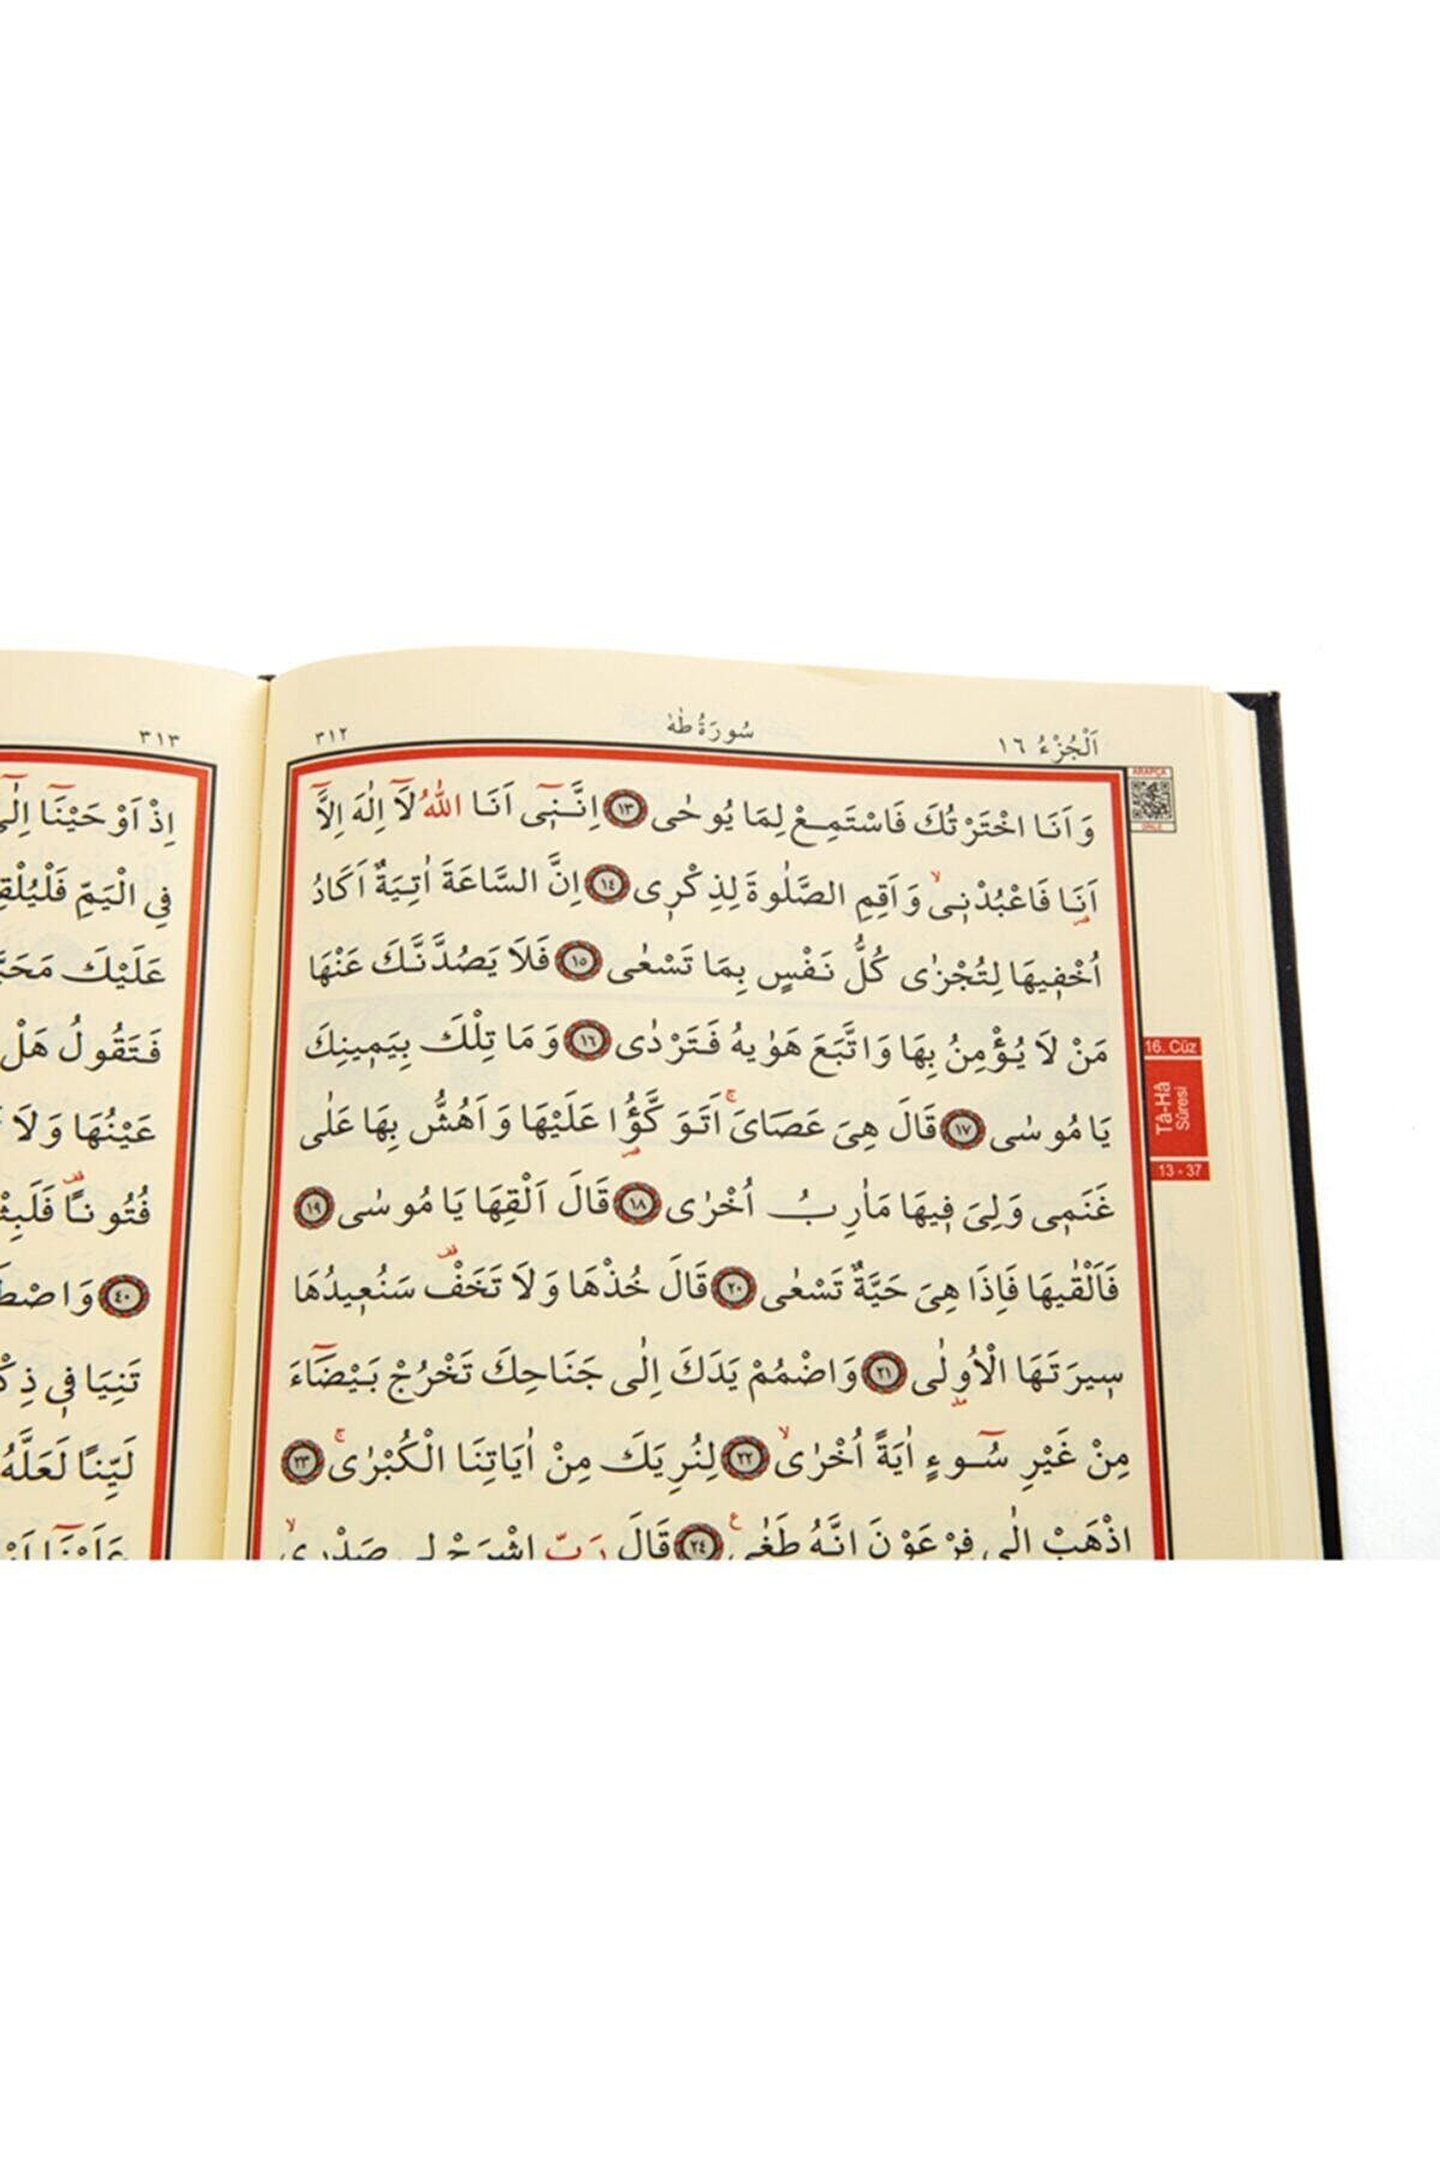 اَلْجُزْءُ ١٦
سُورَةُ طٰهٰ
٣١٢
وَاَنَا اخْتَرْتُكَ فَاسْتَمِعْ لِمَا يُوحٰى ﴿١٣﴾ اِنَّنٖٓى اَنَا اللّٰهُ لَٓا اِلٰهَ اِلَّٓا
اَنَا فَاعْبُدْنٖىۙ وَاَقِمِ الصَّلٰوةَ لِذِكْرٖى ﴿١٤﴾ اِنَّ السَّاعَةَ اٰتِيَةٌ اَكَادُ
اُخْفٖيهَا لِتُجْزٰى كُلُّ نَفْسٍ بِمَا تَسْعٰى ﴿١٥﴾ فَلَا يَصُدَّنَّكَ عَنْهَا
مَنْ لَا يُؤْمِنُ بِهَا وَاتَّبَعَ هَوٰيهُ فَتَرْدٰى ﴿١٦﴾ وَمَا تِلْكَ بِيَمٖينِكَ
يَا مُوسٰى ﴿١٧﴾ قَالَ هِىَ عَصَاىَۚ اَتَوَكَّؤُا عَلَيْهَا وَاَهُشُّ بِهَا عَلٰى
غَنَمٖى وَلِىَ فٖيهَا مَاٰرِبُ اُخْرٰى ﴿١٨﴾ قَالَ اَلْقِهَا يَا مُوسٰى ﴿١٩﴾
فَاَلْقٰيهَا فَاِذَا هِىَ حَيَّةٌ تَسْعٰى ﴿٢٠﴾ قَالَ خُذْهَا وَلَا تَخَفْ۠ سَنُعٖيدُهَا
سٖيرَتَهَا الْاُو۫لٰى ﴿٢١﴾ وَاضْمُمْ يَدَكَ اِلٰى جَنَاحِكَ تَخْرُجْ بَيْضَٓاءَ
مِنْ غَيْرِ سُٓوءٍ اٰيَةً اُخْرٰىۙ ﴿٢٢﴾ لِنُرِيَكَ مِنْ اٰيَاتِنَا الْكُبْرٰىۚ ﴿٢٣﴾
اِذْهَبْ اِلٰى فِرْعَوْنَ اِنَّهُ طَغٰى ﴿٢٤﴾ قَالَ رَبِّ اشْرَحْ لٖى صَدْرٖىۙ
ARAPÇA
DİNLE
16. Cüz
Tâ-Hâ
Sûresi
13 - 37
٣١٣
اِذْ اَوْحَيْنَٓا اِلٰٓى
فِى الْيَمِّ فَلْيُلْقِ
عَلَيْكَ
فَتَقُولُ هَلْ
عَيْنُهَا وَلَا
فُتُونًا
﴿٤٠﴾
تَنِيَا فٖى
لَيِّنًا لَعَلَّهُ
عَلَيْنَٓا